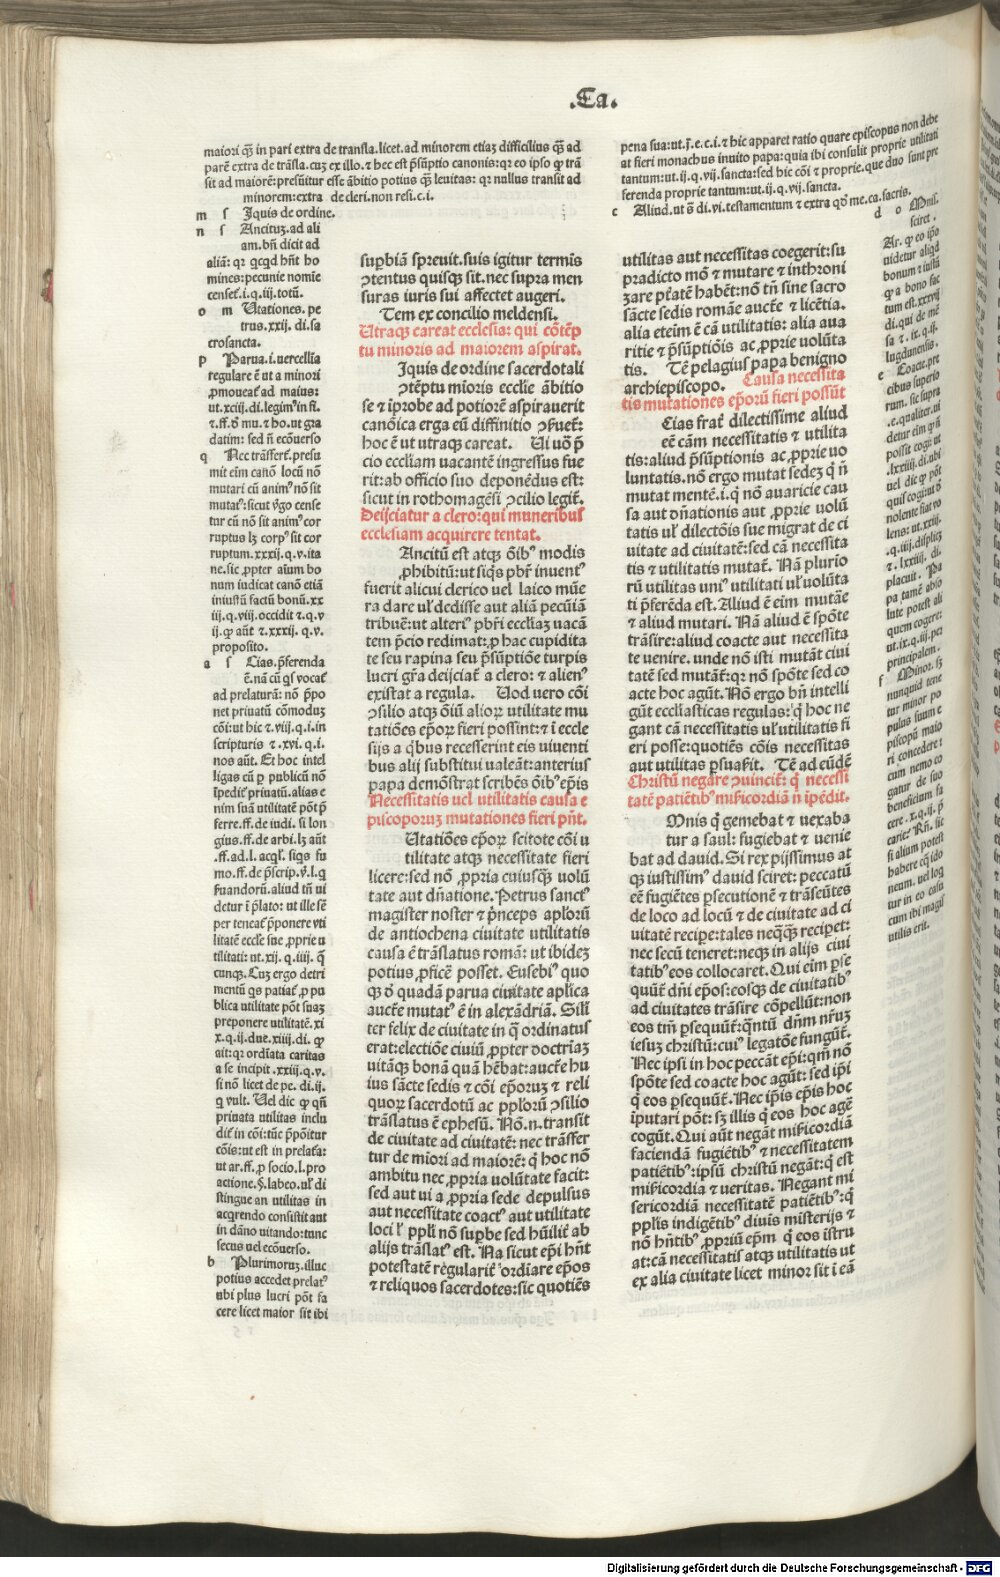 .Ca.
maiori q̄ȝ in pari extra de transla. licet. ad minorem etiaȝ difficilius q̄ȝ ad
parē extra de trāsla. cuȝ ex illo. ⁊ hec est p̄sūptio canonis: qr eo ipso ꝙ trā
sit ad maiorē: presūitur esse ābitio potius q̄ȝ leuitas: qr nullus transit ad
minorem: extra de cleri. non resi. c. i.
m s Iquis de ordine.
n s Ancituȝ. ad ali
am. bn̄ dicit ad
aliā: qr qcqd hn̄t ho
mines: pecunie nomie
censet̄. i. q. iij. totū.
o m Utationes. pe
trus. xxij. di. sa
crosancta.
p Parua. i. uercellia
regulare ē ut a minori
ꝓmoueat̄ ad maius:
ut. xciij. di. legim⁹ in fi.
⁊. ff. ð mu. ⁊ ho. ut gra
datim: sed n̄ ecōuerso
q Nec trāsfert̄. presu
mit eim canō locū nō
mutari cū anim⁹ nō sit
mutat⁹: sicut v̓go cense
tur cū nō sit anim⁹ cor
ruptus lȝ corp⁹ sit cor
ruptum. xxxij. q. v. ita
ne. sic ꝓpter aīum bo
num iudicat canō etiā
iniustū factū bonū. xx
iij. q. viij. occidit ⁊. q. v
ij. ꝙ aūt ⁊. xxxij. q. v.
proposito.
a s Cias. p̄ferenda
ē. nā cū qs vocat̄
ad prelaturā: nō p̄po
net priuatū cōmoduȝ
cōi: ut hic ⁊. viij. q. i. in
scripturis ⁊. xvi. q. i.
nos aūt. Et hoc intel
ligas cū ꝑ publicū nō
īpedit̄ priuatū. alias e
nim suā utilitatē pōt p̄
ferre. ff. de iudi. si lon
gius. ff. de arbi. lȝ aūt
. ff. ad. l. acql̓. siqs fu
mo. ff. de p̄scip. v̓. l. q
f̓uandorū. aliud tn̄ ui
detur ī p̄lato: ut ille sē
per teneat̄ p̄ponere vti
litatē eccl̄e sue ꝓprie u
tilitati: ut. xij. q. iiij. q̄
cunqȝ. Cuȝ ergo detri
mentū qs patiat̄ ꝓ pu
blica utilitate pōt suaȝ
preponere utilitatē. xi
x. q. ij. due. xiiij. di. ꝙ
ait: qr ordīata caritas
a se incipit. xxiij. q. v.
si nō licet de pe. di. ij.
q vult. Uel dic ꝙ qn̄
priuata utilitas inclu
dit̄ in cōi: tūc p̄pōitur
cōis: ut est in prelat̄a:
ut ar. ff. ꝓ socio. l. pro
actione. §. labeo. ul̓ di
stingue an utilitas in
acqrendo consistit aut
in dāno uitando: tunc
secus uel ecōuerso.
b Plurimoruȝ. illuc
potius accedet prelat⁹
ubi plus lucri pōt fa
cere licet maior sit ibi
suꝑbiā spreuit. suis igitur termis
ↄtentus quisqȝ sit. nec supra men
suras iuris sui affectet augeri.
Tem ex concilio meldensi.
Utraqȝ careat ecclesia: qui cōtēp
tu minoris ad maiorem aspirat.
Iquis de ordine sacerdotali
ↄtēptu mīoris eccl̄ie ābitio
se ⁊ īprobe ad potiorē aspirauerit
canōica erga eū diffinitio ↄſuet̄:
hoc ē ut utraqȝ careat. Ui uo p̄
cio eccl̄iam uacantē ingressus fue
rit: ab officio suo deponēdus est:
sicut in rothomagēsi ↄcilio legit̄.
Deijciatur a clero: qui muneribus
ecclesiam acquirere tentat.
Ancitū est atqȝ oīb⁹ modis
ꝓhibitū: ut siqs pb̄r inuent⁹
fuerit alicui clerico uel laico mūe
ra dare ul̓ dedisse aut aliā pecūiā
tribuē: ut alteri⁹ pb̄ri eccl̄iaȝ uacā
tem p̄cio redimat: ꝓ hac cupidita
te seu rapina seu p̄sūptiōe turpis
lucri gr̄a deijciat̄ a clero: ⁊ alien⁹
existat a regula. Uod uero cōi
ↄsilio atqȝ oīū alioꝝ utilitate mu
tatiōes ep̄oꝝ fieri possint: ⁊ ī eccle
sijs a qbus recesserint eis uiuenti
bus alij substitui ualeāt: anterius
papa demōstrat scribēs oīb⁹ ep̄is
Necessitatis uel utilitatis causa e
piscoporuȝ mutationes fieri pn̄t.
Utatiōes ep̄oꝝ scitote cōi u
tilitate atqȝ necessitate fieri
licere: sed nō ꝓpria cuiusqȝ uolū
tate aut dn̄atione. Petrus sanct⁹
magister noster ⁊ p̄nceps apl̄orū
de antiochena ciuitate utilitatis
causa ē trāslatus romā: ut ibideȝ
potius ꝓficē posset. Eusebi⁹ quo
qȝ ð quadā parua ciuitate apl̄ica
auct̄e mutat⁹ ē in alexādriā. Sili
ter felix de ciuitate in q̄ ordinatus
erat: electiōe ciuiū ꝓpter doctrīaȝ
uitāqȝ bonā quā hēbat: auct̄e hu
ius sācte sedis ⁊ cōi ep̄oruȝ ⁊ reli
quoꝝ sacerdotū ac pplōrū ↄsilio
trāslatus ē ephesū. Nō. n. transit
de ciuitate ad ciuitatē: nec trāsfer
tur de mīori ad maiorē: q̄ hoc nō
ambitu nec ꝓpria uolūtate facit:
sed aut ui a ꝓpria sede depulsus
aut necessitate coact⁹ aut utilitate
loci l̓ ppl̄i nō suꝑbe sed hūilit̄ ab
alijs trāslat⁹ est. Na sicut ep̄i hn̄t
potestatē regularit̄ ordīare ep̄os
⁊ reliquos sacerdotes: sic quotiēs
pena sua: ut. j̄. e. c. i. ⁊ hic apparet ratio quare episcopus non debe
at fieri monachus inuito papa: quia ibi consulit proprie utilitati
tantum: ut. ij. q. vij. sancta: sed hic cōi ⁊ proprie. que duo sunt pre
ferenda proprie tantum: ut. ij. q. vij. sancta.
c Aliud. ut s̄ di. vi. testamentum ⁊ extra qð me. ca. sacris.
utilitas aut necessitas coegerit: su
pradicto mō ⁊ mutare ⁊ inthroni
ȝare pt̄atē habēt: nō tn̄ sine sacro
sācte sedis romāe auct̄e ⁊ licētia.
alia eteim ē cā utilitatis: alia aua
ritie ⁊ p̄sūptiōis ac ꝓprie uolūta
tis. Tē pelagius papa benigno
archiepiscopo. Causa necessita
tis mutationes ep̄orū fieri possūt
Cias frat̄ dilectissime aliud
eē cām necessitatis ⁊ utilita
tis: aliud p̄sūptionis ac ꝓprie uo
luntatis. nō ergo mutat sedeȝ q̄ n̄
mutat mentē. i. q̄ nō auaricie cau
sa aut dn̄ationis aut ꝓprie uolū
tatis ul̓ dilectōis sue migrat de ci
uitate ad ciuitatē: sed cā necessita
tis ⁊ utilitatis mutat̄. Nā plurio
rū utilitas uni⁹ utilitati ul̓ uolūta
ti p̄ferēda est. Aliud ē eim mutāe
⁊ aliud mutari. Nā aliud ē spōte
trāsire: aliud coacte aut necessita
te uenire. unde nō isti mutāt ciui
tatē sed mutāt̄: qr nō spōte sed co
acte hoc agūt. Nō ergo bn̄ intelli
gūt eccl̄iasticas regulas: q̄ hoc ne
gant cā necessitatis ul̓ utilitatis fi
eri posse: quotiēs cōis necessitas
aut utilitas ꝑsuaſit. Tē ad eūdē
Christū negare ↄuincit̄: q̄ necessi
tatē patiētib⁹ mīſicordiā n̄ ipēdit.
Mnis q̄ gemebat ⁊ uexaba
tur a saul: fugiebat ⁊ uenie
bat ad dauid. Si rex pijssimus at
qȝ iustissim⁹ dauid sciret: peccatū
eē fugiētes ꝑsecutionē ⁊ trāseūtes
de loco ad locū ⁊ de ciuitate ad ci
uitatē recipe: tales neq̄qȝ reciperet:
nec secū teneret: neqȝ in alijs ciui
tatib⁹ eos collocaret. Qui eim ꝑse
quūt̄ dn̄i ep̄os: eosqȝ de ciuitatib⁹
ad ciuitates trāsire cōpellūt: non
eos tm̄ ꝑsequūt̄: qntū dn̄m nr̄uȝ
iesuȝ christū: cui⁹ legatōe fungūt̄.
Nec ipsi in hoc peccāt ep̄i: qm̄ nō
spōte sed coacte hoc agūt: sed ip̄i
q̄ eos ꝑsequūt̄. Nec ip̄is ep̄is hoc
īputari pōt: sȝ illis q̄ eos hoc agē
cogūt. Qui aūt negāt mīſicordiā
faciendā fugiētib⁹ ⁊ necessitatem
patiētib⁹: ipsū christū negāt: q̄ est
mīſicordia ⁊ ueritas. Negant mi
sericordiā necessitatē patiētib⁹: q̄
ppl̄is indigētib⁹ diuīs mīsterijs ⁊
nō hn̄tib⁹ ꝓpriū ep̄m q̄ eos īstru
at: cā necessitatis atqȝ utilitatis ut
ex alia ciuitate licet minor sit ī eā
d o Mnis.
sciret.
Ar. ꝙ eo ip̄o
uidetur aliqd
bonum ⁊ iustū
q̄ a bono fac
tum est. xxxvij
di. qui de mē
sa ⁊. ix. q. ij.
lugdunensis.
e Coacte. pre
cibus superio
rum. sic supra
. e. qualiter. ui
detur eim ꝙ n̄
possit cogi: ut
. lxxiiij. di. ubi
uel dic ꝙ pōt
quis cogi: ut ð
nolente fiat vo
lens: ut. xxiij.
. q. iiij. displicȝ
⁊. lxxiiij. di.
placuit. Pa
pa tamē abso
lute potest ali
quem cogere:
ut. ix. q. iij. per
principalem.
f Minor. sȝ
nunquid tene
tur minor po
pulus suum e
piscopū maio
ri concedere:
cum nemo co
gatur de suo
beneficium fa
cere. x. q. ij. p̄
carie⁹. Rn̄. sic
si alium potest
habere eq̄ ido
neum. uel log
tur in eo casu
cum ibi magis
utilis erit.
Digitalisierung gefördert durch die Deutsche Forschungsgemeinschaft - DFG